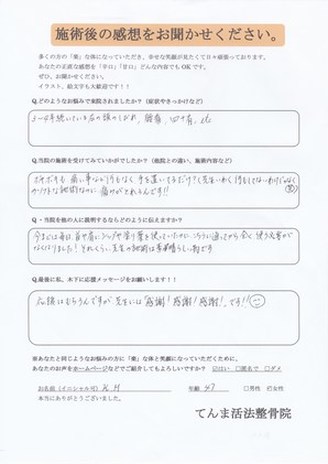 施術後の感想をお聞かせください。
多くの方の「楽」な体になっていただき、幸せな笑顔が見たくて日々頑張っております。
あなたの正直な感想を「辛口」「甘口」どんな内容でもOKです。
ぜひ、お聞かせください。
イラスト、絵文字も大歓迎です！！
Q.どのようなお悩みで来院されましたか？（症状やきっかけなど）
3〜4年続いている右の頭のしびれ、腰痛、四十肩、etc
Q.当院の施術を受けてみていかがでしたか？（他院との違い、施術内容など）
ボキボキも痛い事など何もなく手を置いてるだけ？（先生いわく何もしてないわけじゃなく）
Q.・当院を他の人に説明するならどのように伝えますか？
今までは毎日、首や肩にシップや塗り薬を使っていたのに、こちらに通ってから全く使う必要が
なくなりました！それくらい先生の施術は素晴らしい物です
Q.最後に私、木下に応援メッセージをお願いします！！
応援はもちろんですが先生には感謝！感謝！感謝！です!!
※あなたと同じようなお悩みの方に「楽」な体と笑顔になっていただくために、
あなたのお声をホームページなどでご紹介してもよろしいですか？ ☑はい □匿名で □ダメ
お名前（イニシャル可） K.H 年齢 43 □男性 ☑女性
本当にありがとうございました。
てんま活法整骨院